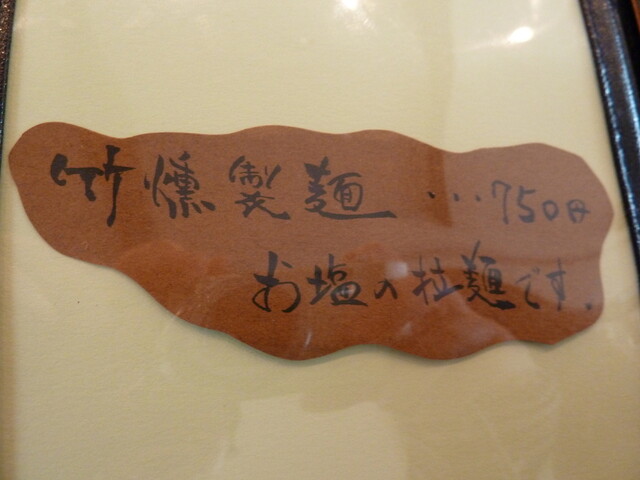 竹燻製麺 …750円
お塩の拉麺です.